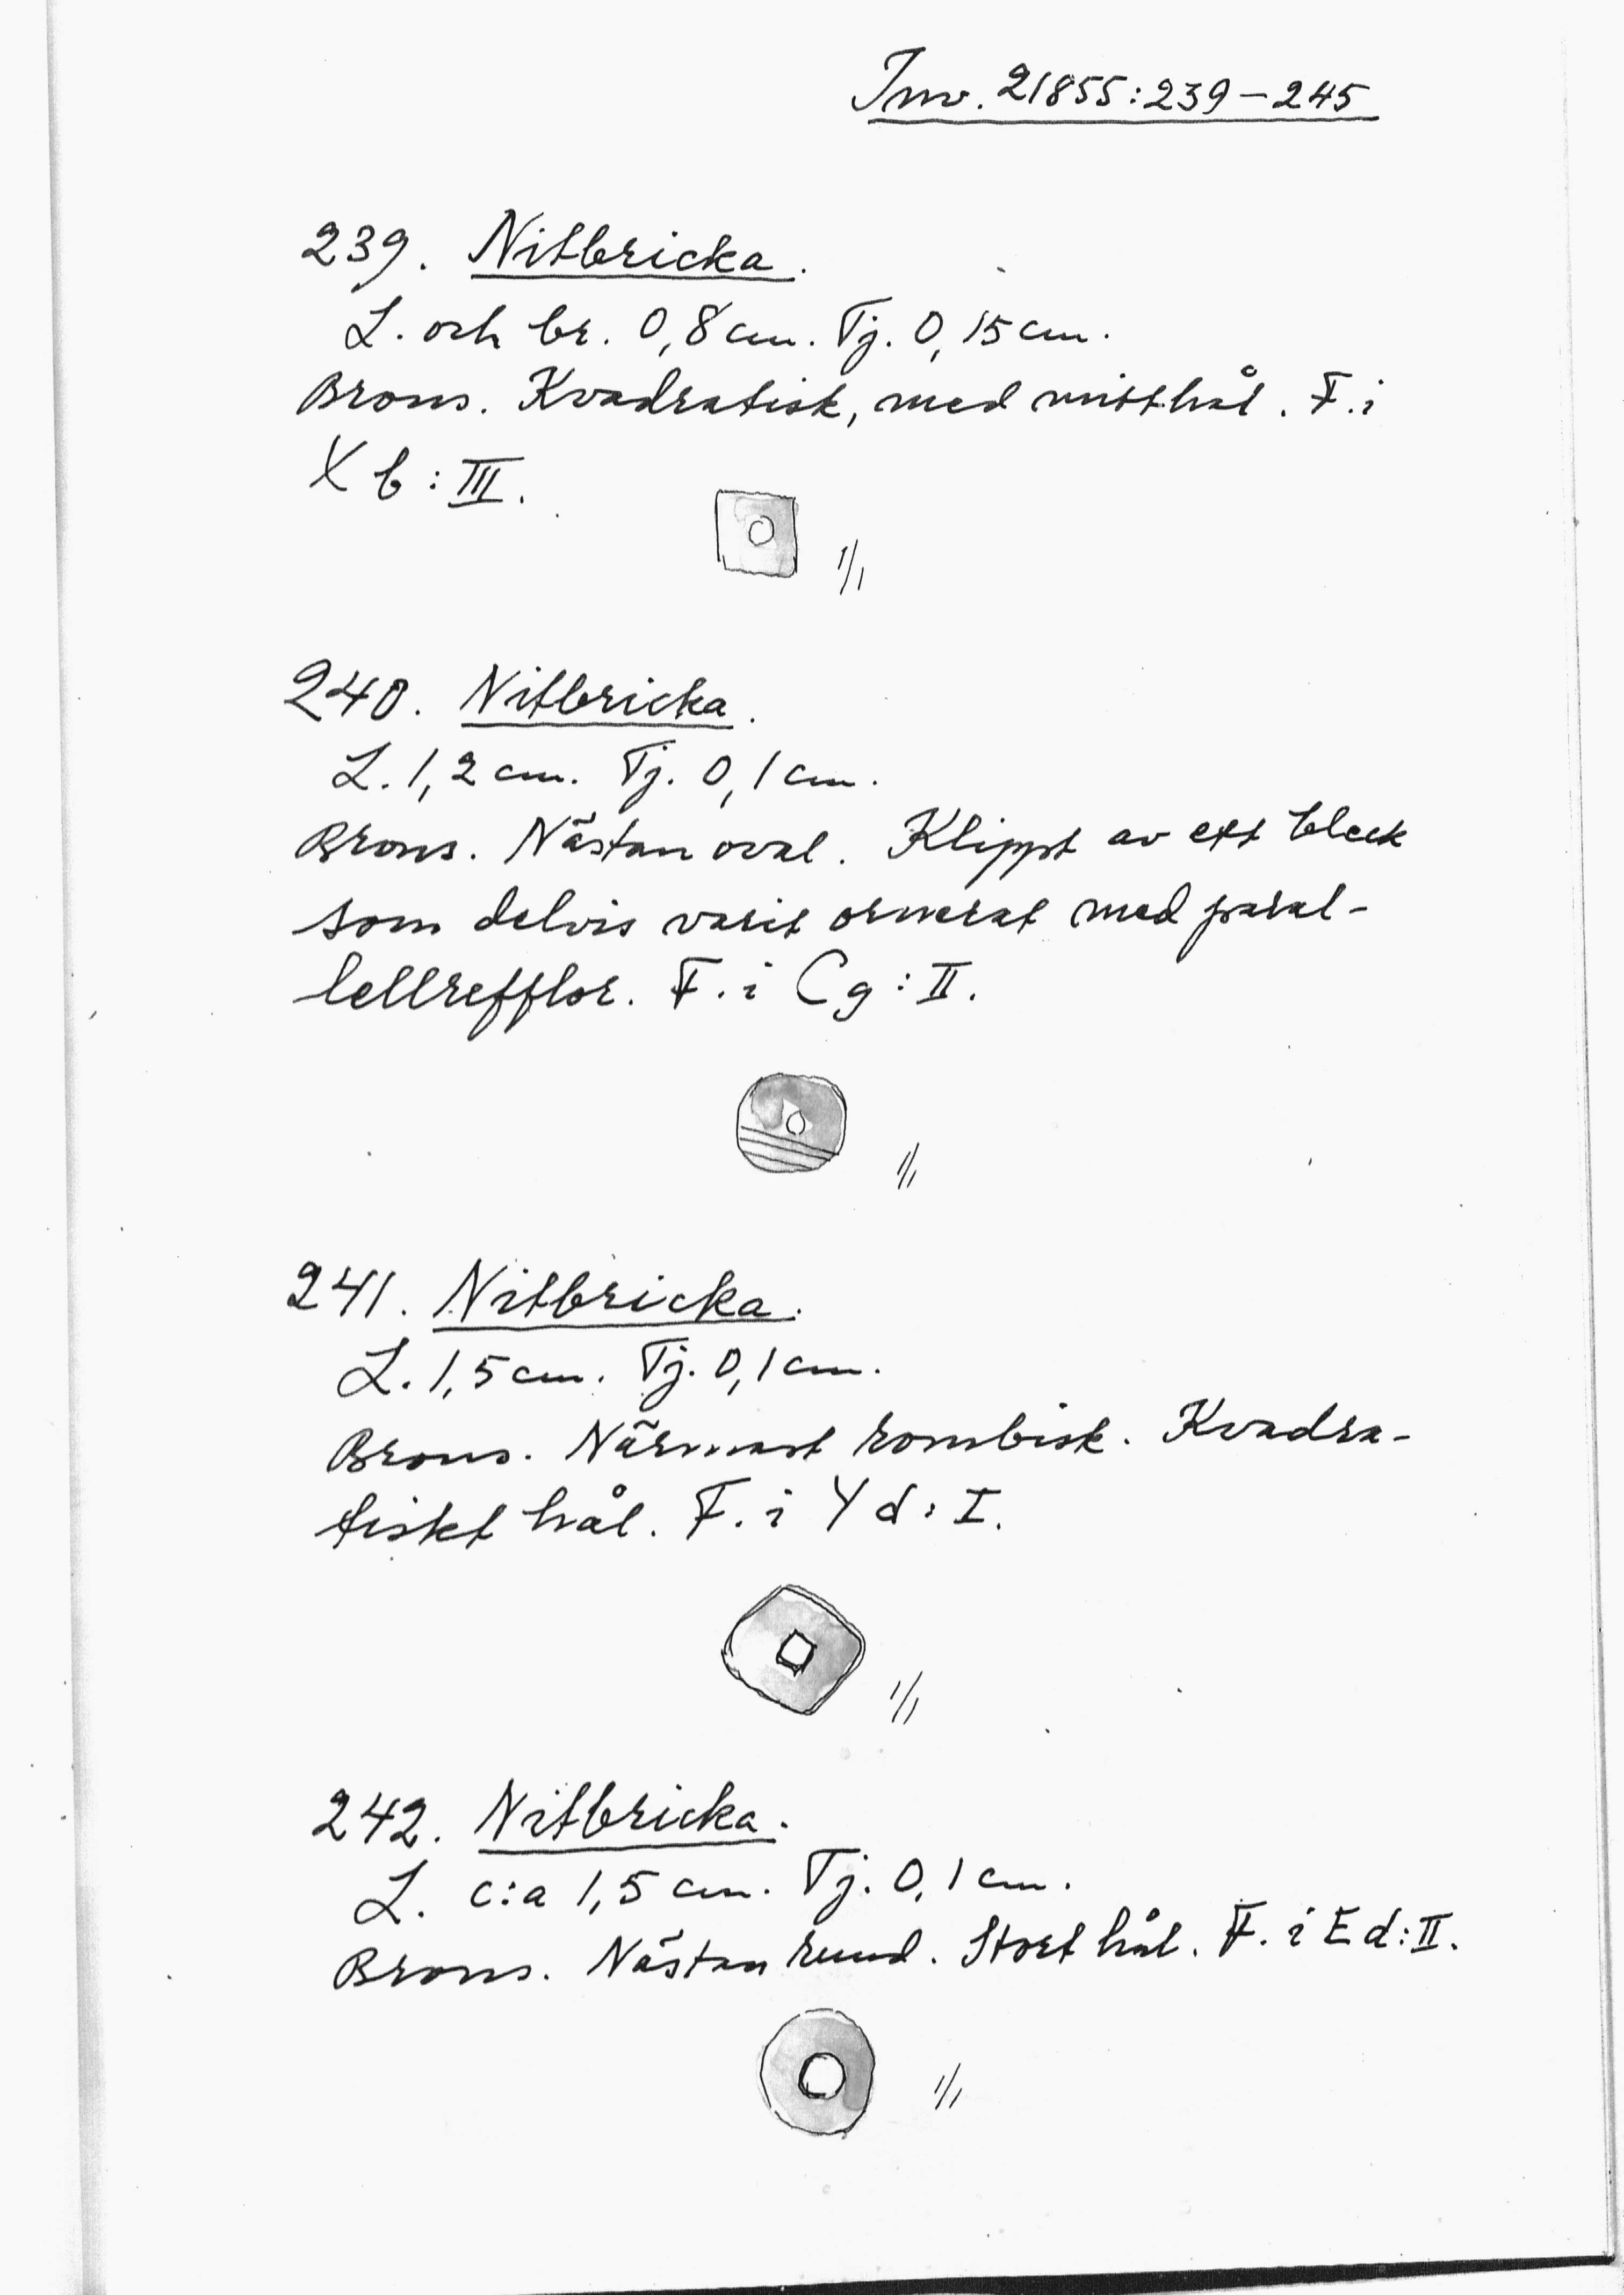 Inv. 21855:239–245
239. Nitbricka.
L. och br. 0,8 cm. Tj. 0,15 cm.
Brons. Kvadratisk, med mitthål. F. i
X b : III.
1/1
240. Nitbricka.
L. 1,2 cm. Tj. 0,1 cm.
Brons. Nästan oval. Klippt av ett bleck
som delvis varit ornerat med paral-
lellrefflor. F. i C g : II.
1/1
241. Nitbricka.
L. 1,5 cm. Tj. 0,1 cm.
Brons. Närmast rombisk. Kvadra-
tiskt hål. F. i Y d : I.
1/1
242. Nitbricka.
L. c:a 1,5 cm. Tj. 0,1 cm.
Brons. Nästan rund. Stort hål. F. i E d : II.
1/1